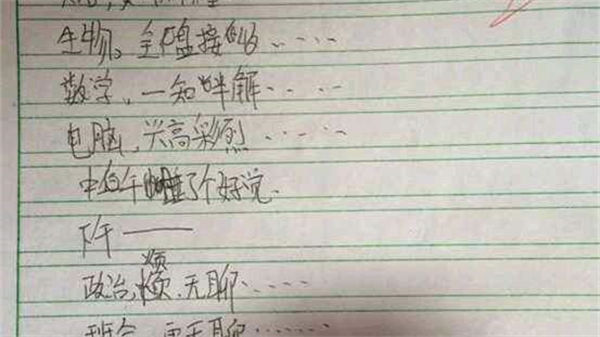 生物，全盘接收.....
数学，一知半解.....
电脑，兴高彩烈.....
中午睡了个好觉.
下午——
烦
政治，烦，无聊.....
班会，更无聊......